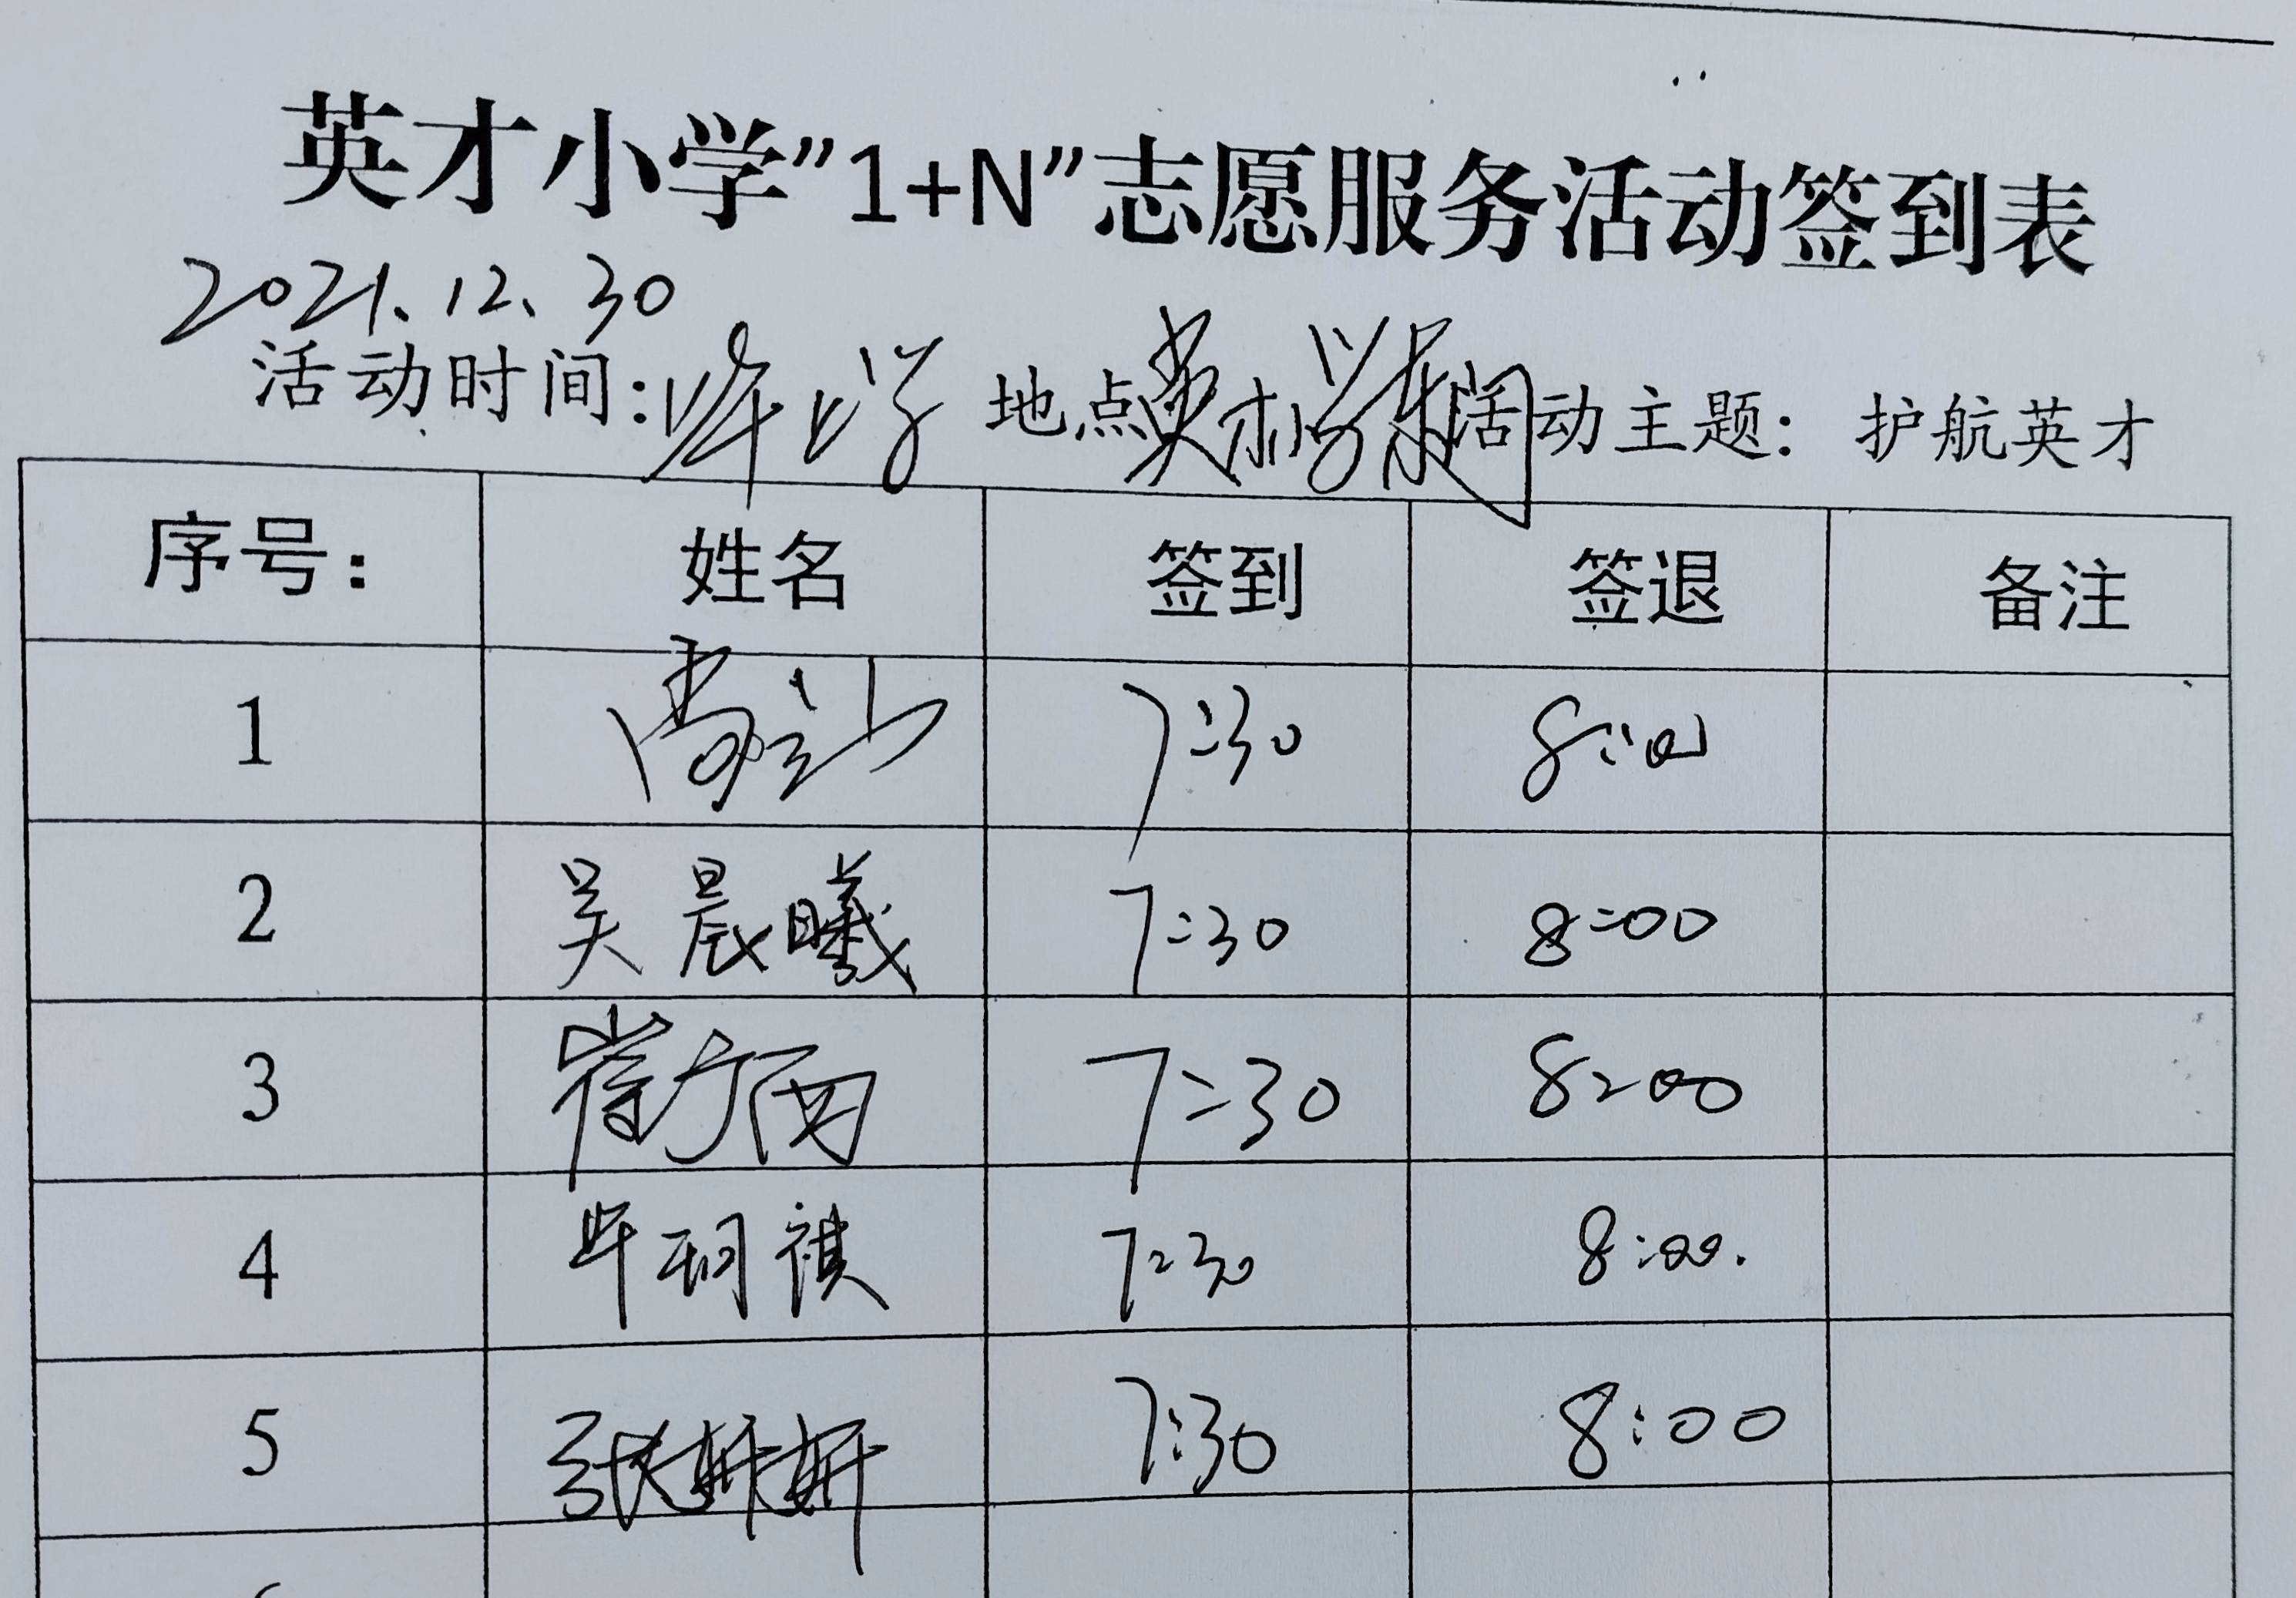 英才小学"1+N"志愿服务活动签到表
2021.12.30
活动时间: 上学 地点 英才小学东门 活动主题: 护航英才
序号: 姓名 签到 签退 备注
1 7:30 8:00
2 吴晨曦 7:30 8:00
3 崔方雨 7:30 8:00
4 毕珂祺 7:30 8:00.
5 张妍妍 7:30 8:00